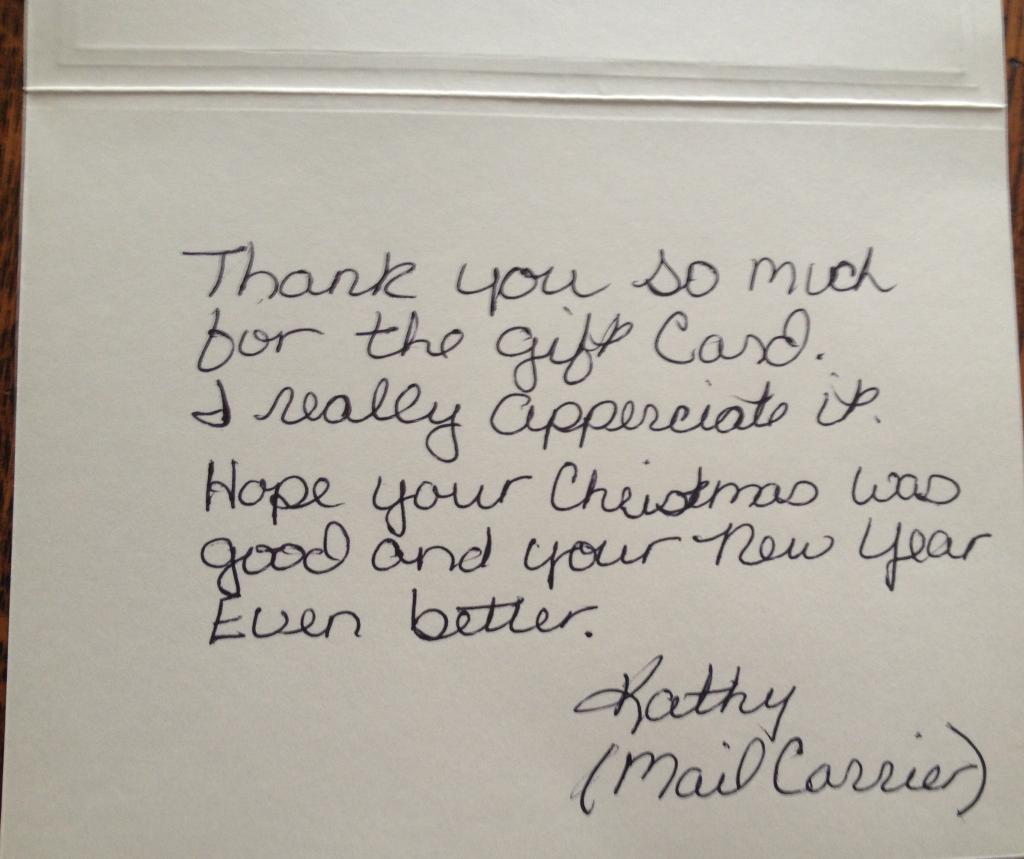 Thank you so much
for the gift Card.
I really apperciate it.
Hope your Christmas was
good and your New Year
Even better.
Kathy
(Mail Carrier)